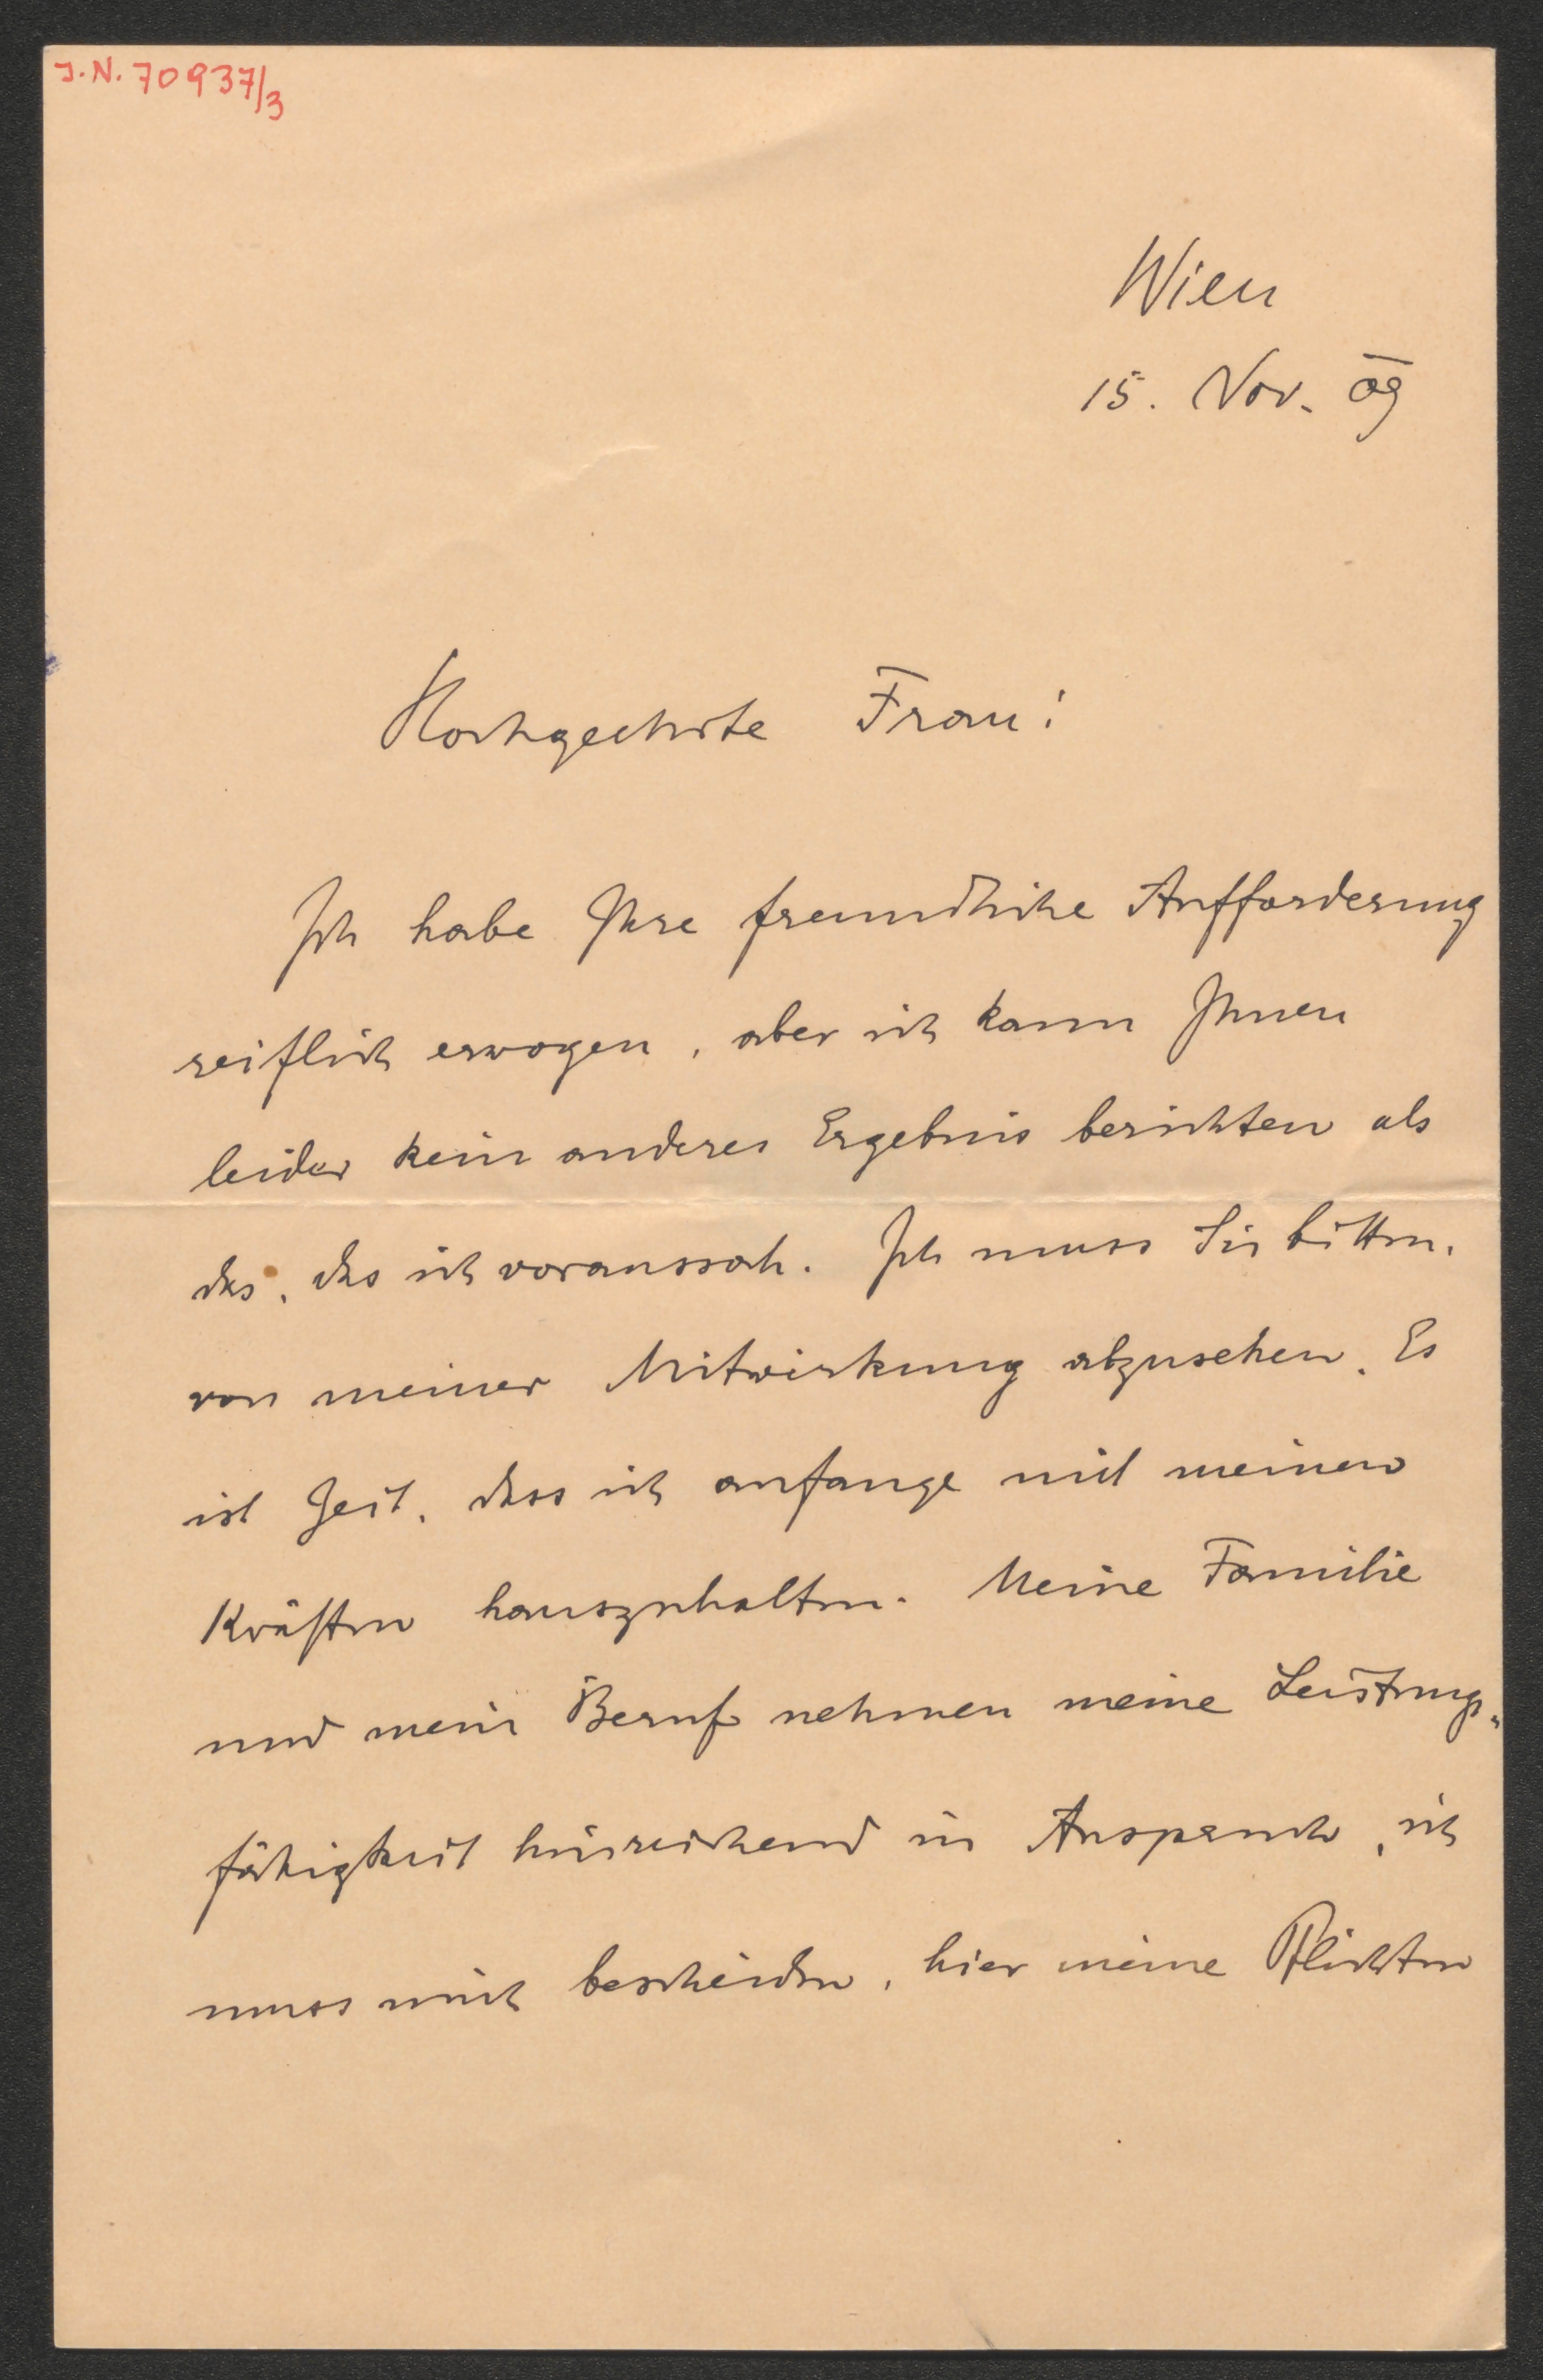 J.N. 70937/3
Wien
15. Nov. 09
Hochgeehrte Frau!
Ich habe Ihre freundliche Aufforderung
reiflich erwogen, aber ich kann Ihnen
leider kein anderes Ergebnis berichten als
das, das ich voraussah. Ich muss Sie bitten,
von meiner Mitwirkung abzusehen. Es
ist Zeit, dass ich anfange mit meinen
Kräften hauszuhalten. Meine Familie
und mein Beruf nehmen meine Leistungs-
fähigkeit hinreichend in Anspruch, ich
muss mich bescheiden, hier meine Pflichten